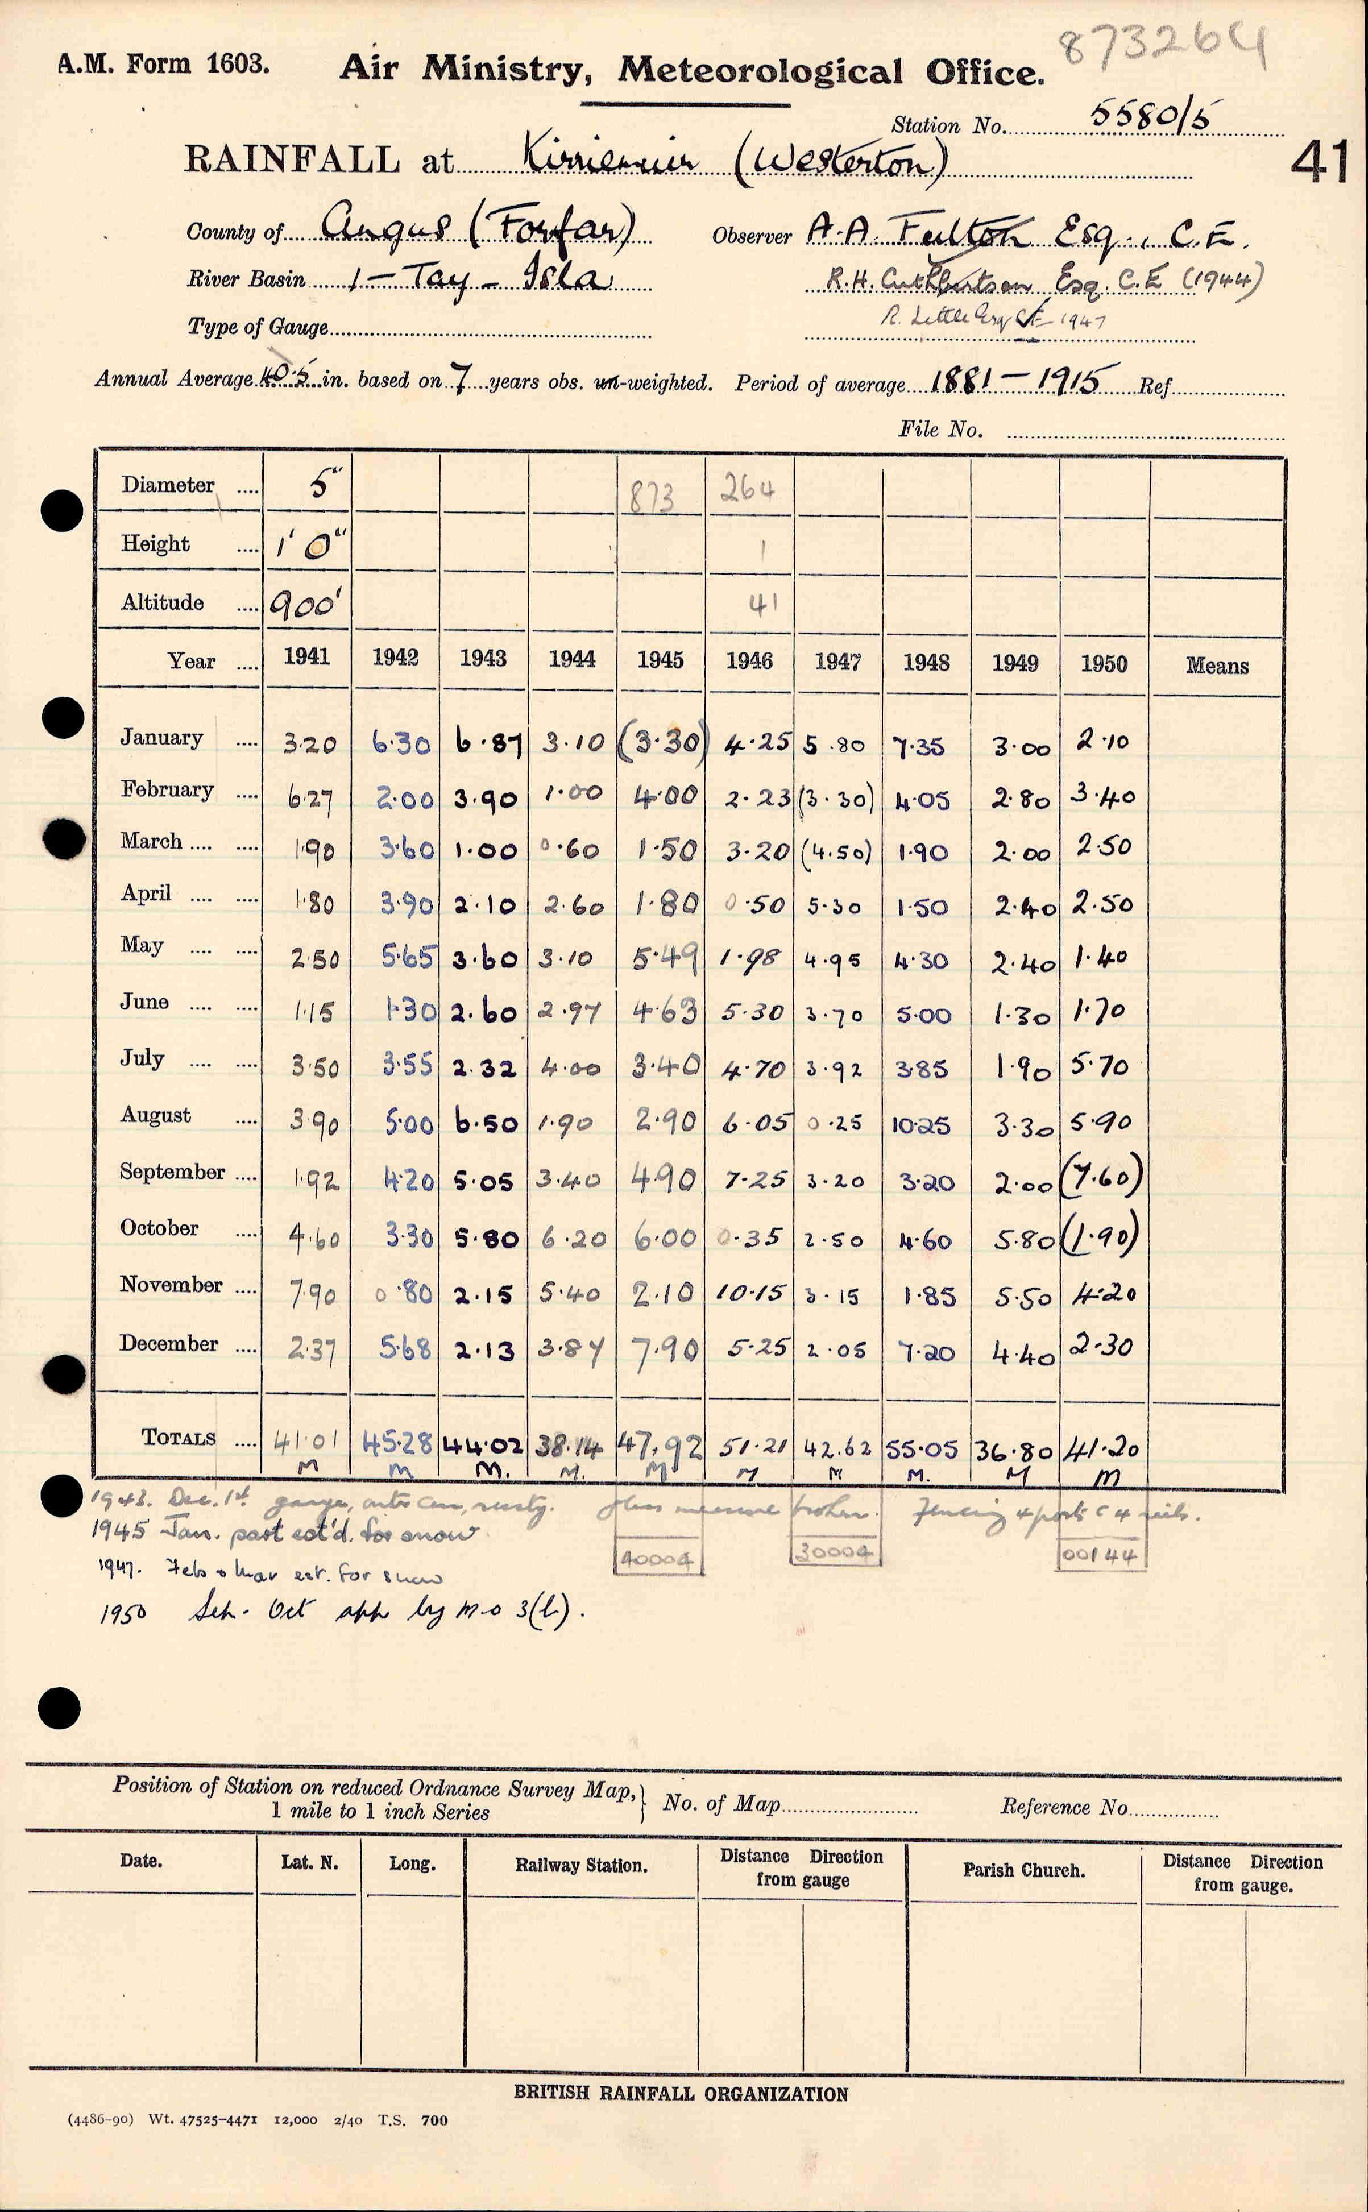 873264
A.M. Form 1603. Air Ministry, Meteorological Office.
Station No. 5580/5
41
RAINFALL at Kirriemuir (Westerton)
County of Angus (Forfar) Observer A.A. Fulton Esq., C.E.
River Basin 1 - Tay - Isla R.H. Cuthbertson Esq. C.E (1944)
Type of Gauge R. Little Esq C.E 1947
Annual Average 40.5 in. based on 7 years obs. un-weighted. Period of average 1881 - 1915 Ref.
File No.
Diameter .... 5" 873 264
Height .... 1' 0" 1
Altitude .... 900' 41
Year .... 1941 1942 1943 1944 1945 1946 1947 1948 1949 1950 Means
January .... 3.20 6.30 6.87 3.10 (3.30) 4.25 5.80 7.35 3.00 2.10
February .... 6.27 2.00 3.90 1.00 4.00 2.23 (3.30) 4.05 2.80 3.40
March .... .... 1.90 3.60 1.00 0.60 1.50 3.20 (4.50) 1.90 2.00 2.50
April .... .... 1.80 3.90 2.10 2.60 1.80 0.50 5.30 1.50 2.40 2.50
May .... .... 2.50 5.65 3.60 3.10 5.49 1.98 4.95 4.30 2.40 1.40
June .... .... 1.15 1.30 2.60 2.97 4.63 5.30 3.70 5.00 1.30 1.70
July .... .... 3.50 3.55 2.32 4.00 3.40 4.70 3.92 3.85 1.90 5.70
August .... 3.90 5.00 6.50 1.90 2.90 6.05 0.25 10.25 3.30 5.90
September .... 1.92 4.20 5.05 3.40 4.90 7.25 3.20 3.20 2.00 (7.60)
October .... 4.60 3.30 5.80 6.20 6.00 0.35 2.50 4.60 5.80 (1.90)
November .... 7.90 0.80 2.15 5.40 2.10 10.15 3.15 1.85 5.50 4.20
December .... 2.37 5.68 2.13 3.87 7.90 5.25 2.05 7.20 4.40 2.30
TOTALS .... 41.01 45.28 44.02 38.14 47.92 51.21 42.62 55.05 36.80 41.20
M M M. M. M M M M. M M
1943. Dec. 1st gauge, outer can, rusty. glass measure broken. Fencing 4 posts c 4 rails.
1945 Jan. part est'd. for snow
40004 30004 00144
1947. Feb & Mar est. for snow
1950 Sep. Oct app by M.O 3(b).
Position of Station on reduced Ordnance Survey Map, } No. of Map Reference No.
1 mile to 1 inch Series
Date. Lat. N. Long. Railway Station. Distance Direction from gauge Parish Church. Distance Direction from gauge.
BRITISH RAINFALL ORGANIZATION
(4486-90) Wt. 47525-4471 12,000 2/40 T.S. 700